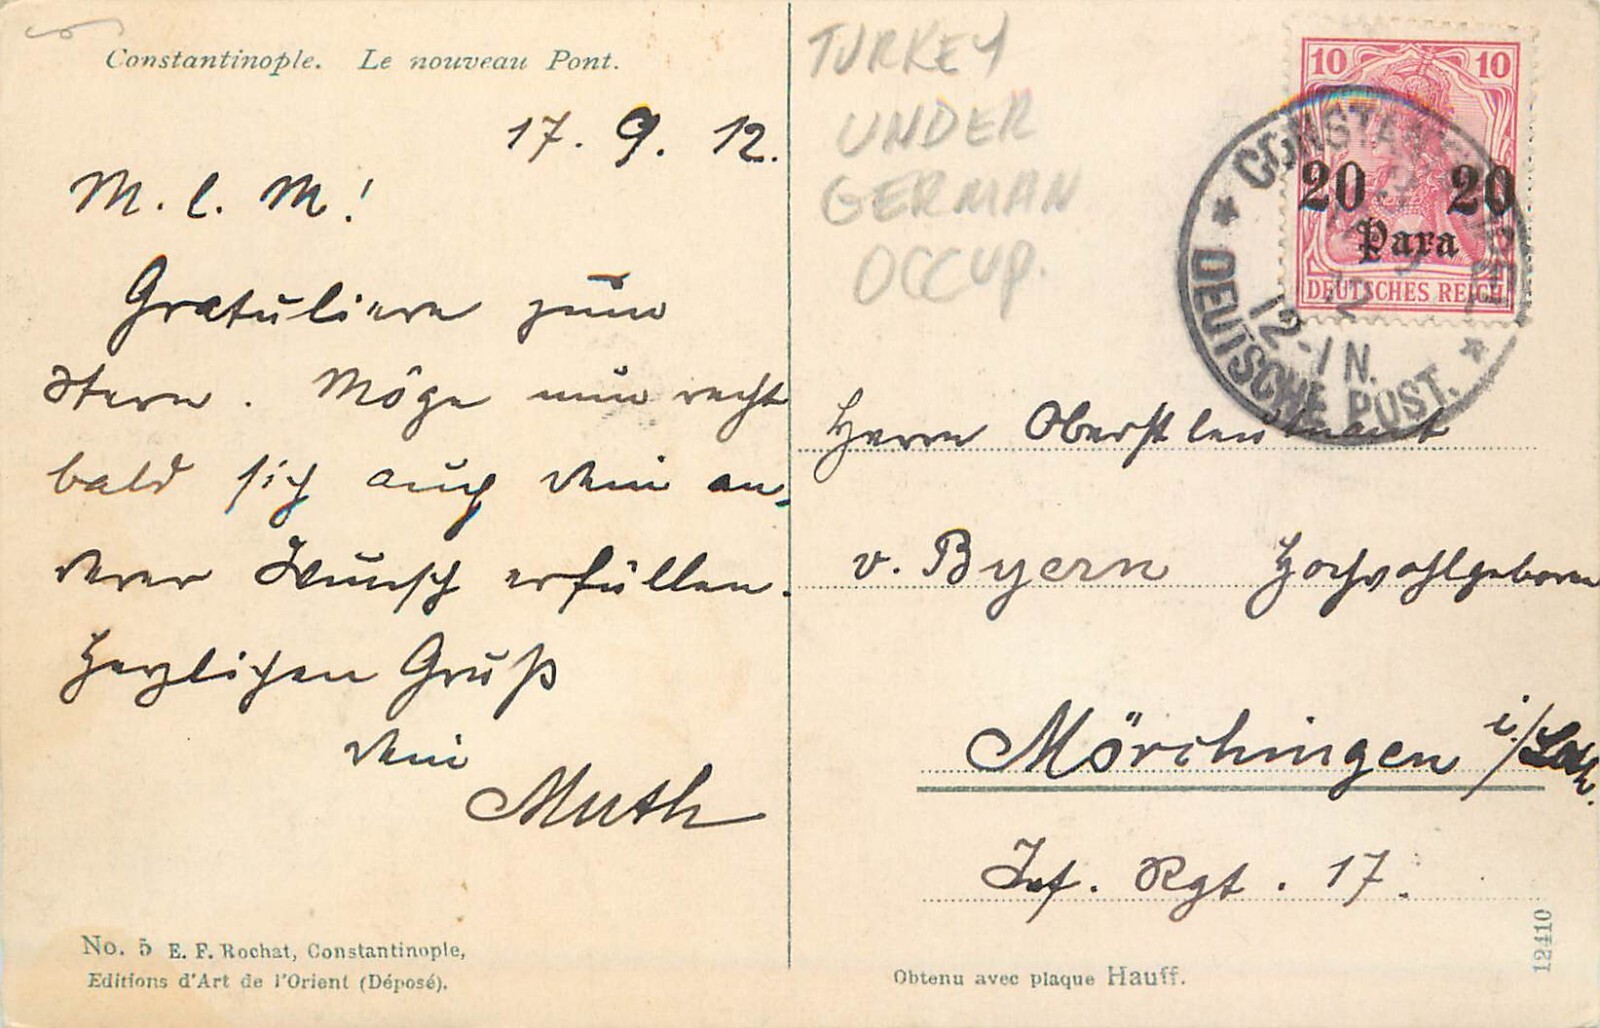 Constantinople. Le nouveau Pont.
17. 9. 12.
M. l. M!
Gratuliere zum
Stern. Möge nun recht
bald sich auch dein an-
derer Wunsch erfüllen.
Herzlichen Gruß
dein
Muth
No. 5 E. F. Rochat, Constantinople,
Editions d'Art de l'Orient (Déposé).
TURKEY
UNDER
GERMAN
OCCUP.
10 10
20 20
Para
DEUTSCHES REICH
CONSTANTINOPEL 1
12-1N.
DEUTSCHE POST.
Herrn Oberstleutnant
v. Byern Hochwohlgeboren
Mörchingen i/Loth.
Inf. Rgt. 17.
Obtenu avec plaque Hauff.
12410